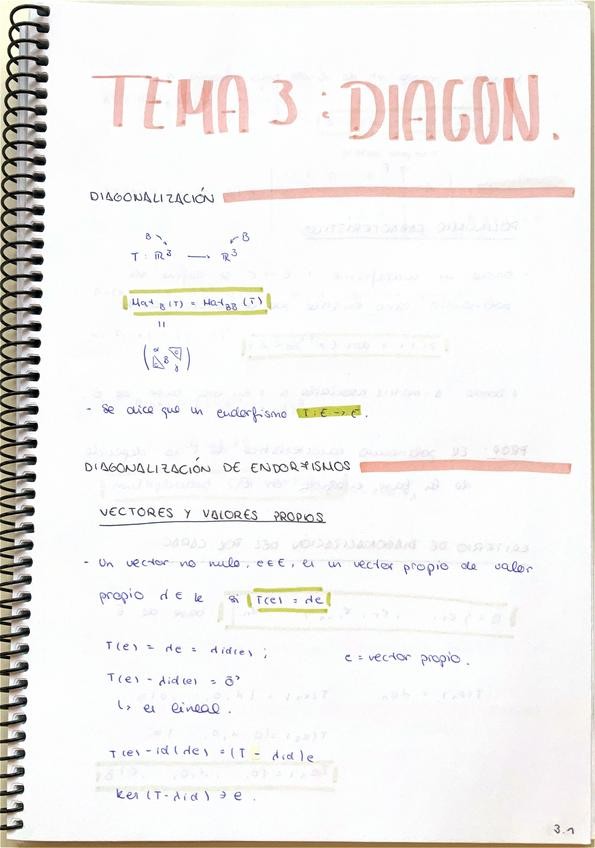 TEMA 3 : DIAGON.
DIAGONALIZACIÓN
B B
T : ℝ³ → ℝ³
Mat_B (T) = Mat_BB (T)
||
- Se dice que un endorfismo T : E → E.
DIAGONALIZACIÓN DE ENDORFISMOS
VECTORES Y VALORES PROPIOS
- Un vector no nulo, e∈E, es un vector propio de valor
propio λ∈k si T(e) = λe
T(e) = λe = λid(e) ;
e = vector propio.
T(e) - λid(e) = 0⃗
↳ es lineal.
T(e) - id(λe) = (T - λid)e
Ker (T-λid) ∋ e.
3.1